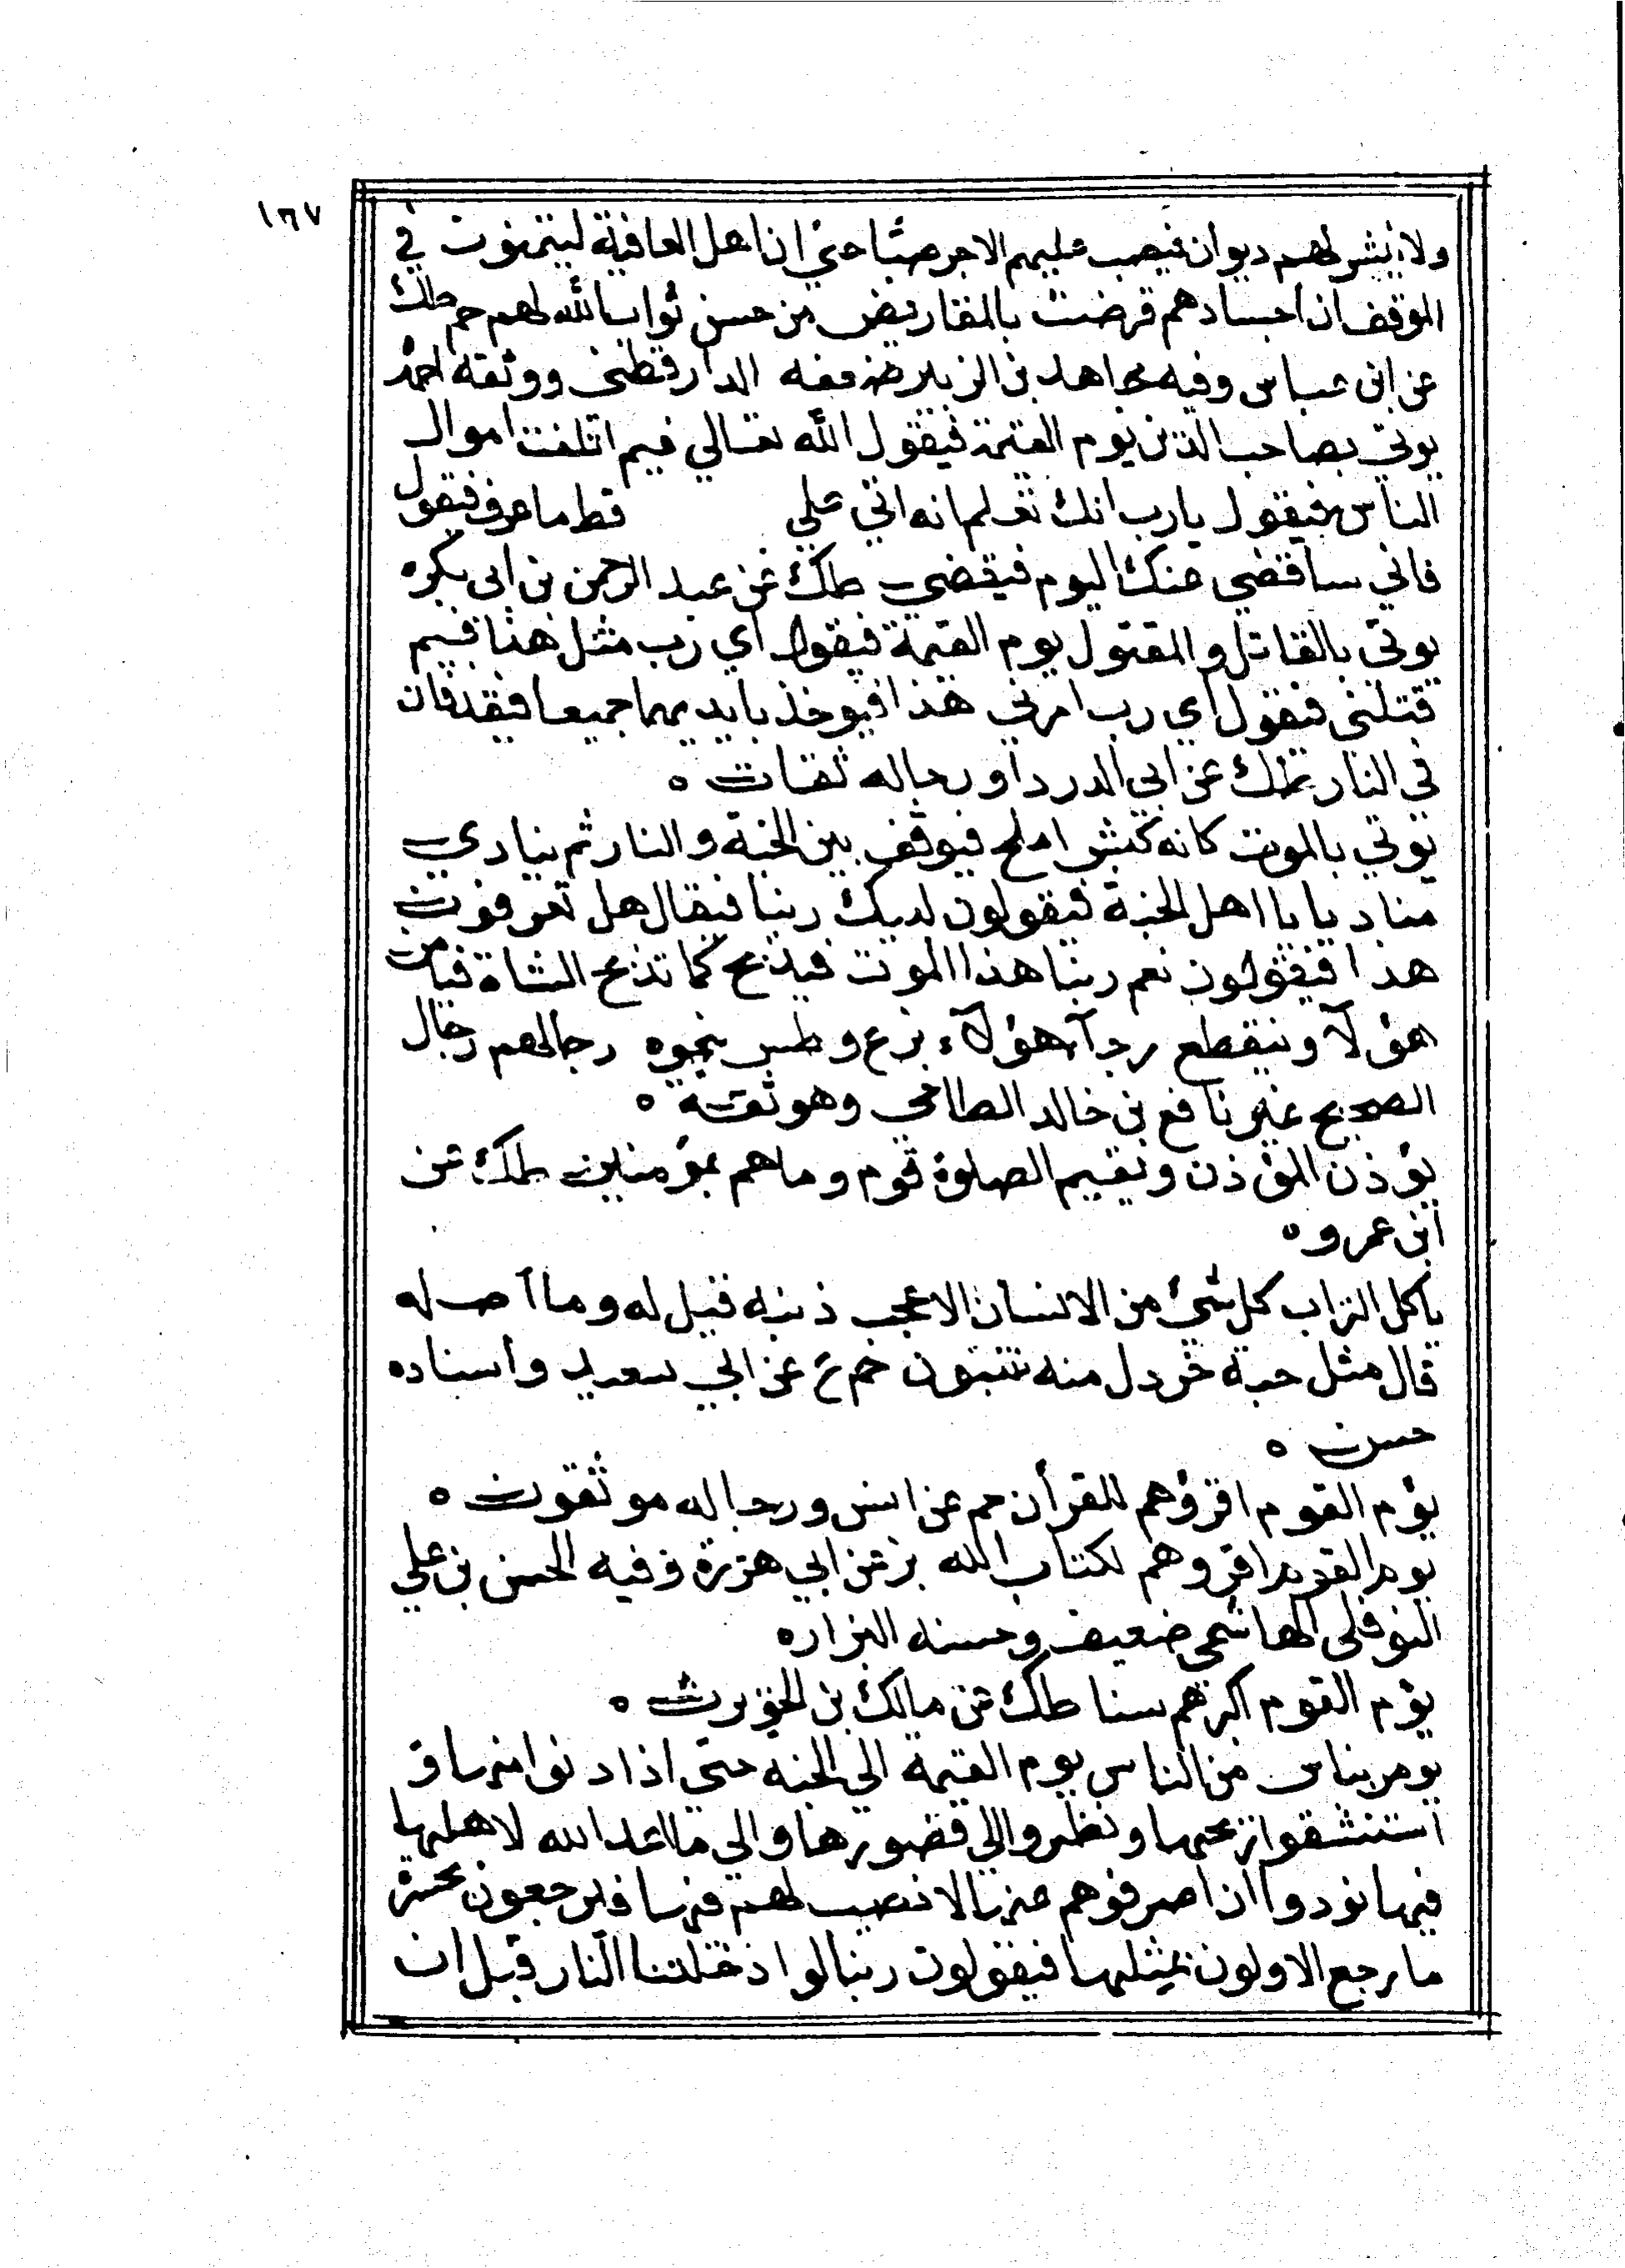 ١٦٧
ولا ينشر لهم ديوان فيصب عليهم الاجر صبًا حتي ان اهل العافية ليتمنون في
الموقف ان اجسادهم قرضت بالمقاريض من حسن ثواب الله لهم حم طك
عن ابن عباس وفيه مجاهد بن الزبير ضعفه الدارقطنى ووثقه احمد
يوتي بصاحب الدين يوم القيمة فيقول الله تعالي فيم اتلفت اموال
الناس فيقول يارب انك تعلم انه اتي علي قط ما عرف فيقول
فاني ساقضي عنك اليوم فيقضي طك عن عبد الرحمن بن ابى بكره
يوتي بالقاتل والمقتول يوم القيمة فيقول اي رب مثل هذا فيم
قتلنى فيقول اي رب امرني هذا فيوخذ بايديهما جميعا فيقذفان
في النار طك عن ابى الدرداو رجاله ثقات ه
يوتي بالموت كانه كبش املح فيوقف بين الجنة والنار ثم ينادي
مناد يا يا اهل الجنة فيقولون لبيك ربنا فيقال هل تعرفون
هذا فيقولون نعم ربنا هذا الموت فيذبح كما تذبح الشاة فيامن
هؤلآ وينقطع رجآ هؤلآء بزع وطس بنحوه رجالهم رجال
الصحيح غير نافع بن خالد الطاحي وهو ثقة ه
يؤذن المؤذن ويقيم الصلوة قوم وما هم بمؤمنين طك عن
ابن عمرو ه
ياكل التراب كل شيئ من الانسان الا عجب ذنبه قيل له وما اصله
قال مثل حبة خردل منه تنبتون حم ع عن ابي سعيد واسناده
حسن ه
يؤم القوم اقرؤهم للقرأن حم عن انس ورجاله موثقون ه
يوم القوم اقروهم لكتاب الله بز عن ابي هريرة وفيه الحسن بن علي
النوفلى الهاشمي ضعيف وحسنه البزار ه
يؤم القوم اكبرهم سنا طك عن مالك بن الحويرث ه
يومر بناس من الناس يوم القيمة الي الجنه حتي اذا دنوا منها و
استنشقوا ريحها ونظروا الي قصورها والي ما اعد الله لاهلها
فيها نودوا ان اصرفوهم عنها لا نصيب لهم فيها فيرجعون بحسرة
ما رجع الاولون بمثلها فيقولون ربنا لو ادخلتنا النار قبل ان